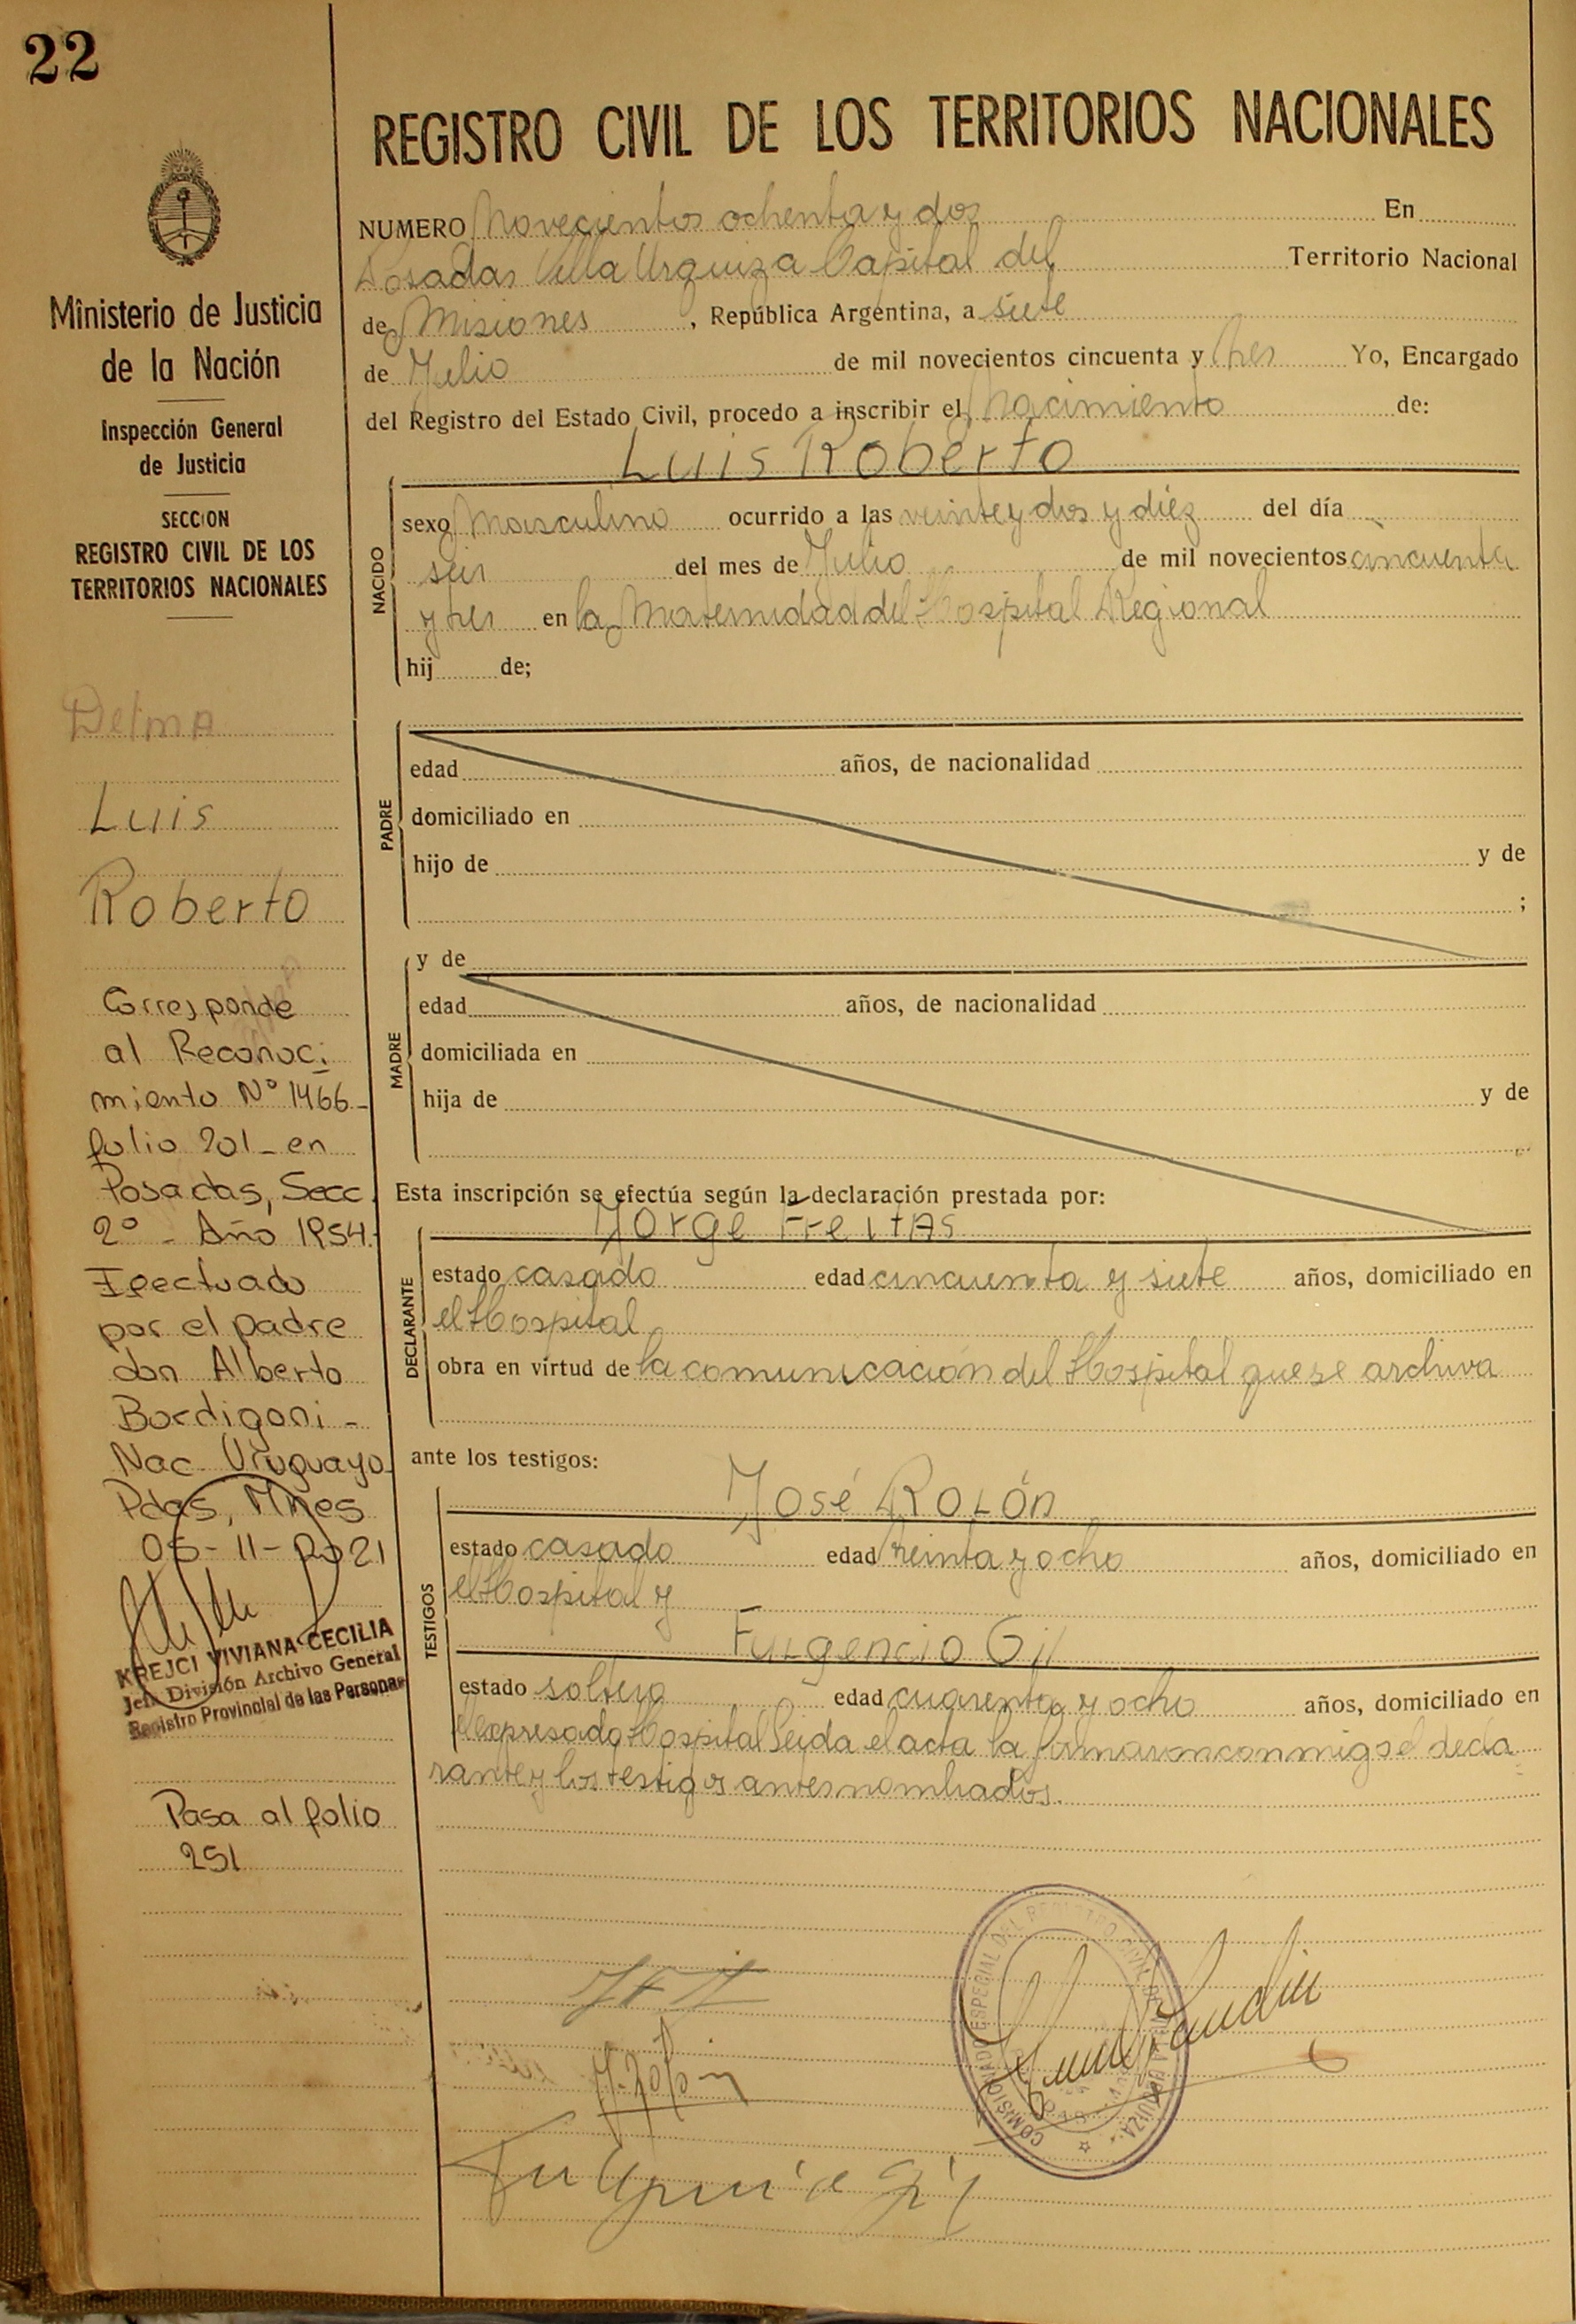 22
REGISTRO CIVIL DE LOS TERRITORIOS NACIONALES
Ministerio de Justicia
de la Nación
Inspección General
de Justicia
SECCION
REGISTRO CIVIL DE LOS
TERRITORIOS NACIONALES
Delma
Luis
Roberto
Corresponde
al Reconoci
miento Nº 1466-
folio 201 - en
Posadas, Secc.
2º - Año 1954.
Efectuado
por el padre
don Alberto
Bordigoni -
Nac. Uruguayo.
Pdas, Mnes
05-11-2021
KREJCI VIVIANA CECILIA
Jefe División Archivo General
Registro Provincial de las Personas
Pasa al folio
251
NUMERO Novecientos ochenta y dos En
Posadas Villa Urquiza Capital del Territorio Nacional
de Misiones, República Argentina, a siete
de Julio de mil novecientos cincuenta y tres Yo, Encargado
del Registro del Estado Civil, procedo a inscribir el Nacimiento de:
Luis Roberto
NACIDO
sexo Masculino ocurrido a las veinte y dos y diez del día
seis del mes de Julio de mil novecientos cincuenta
y tres en la Maternidad del Hospital Regional
hij de;
PADRE
edad años, de nacionalidad
domiciliado en
hijo de y de
;
MADRE
y de
edad años, de nacionalidad
domiciliada en
hija de y de
Esta inscripción se efectúa según la declaración prestada por:
Jorge Freitas
DECLARANTE
estado casado edad cincuenta y siete años, domiciliado en
el Hospital
obra en virtud de la comunicación del Hospital que se archiva
ante los testigos:
José Rolón
TESTIGOS
estado casado edad treinta y ocho años, domiciliado en
el Hospital y
Fulgencio Gil
estado soltero edad cuarenta y ocho años, domiciliado en
el expresado Hospital Leida el acta la firmaron conmigo el decla
rante y los testigos antes nombrados.
COMISIONADO ESPECIAL DEL REGISTRO CIVIL
Fulgencio Gil